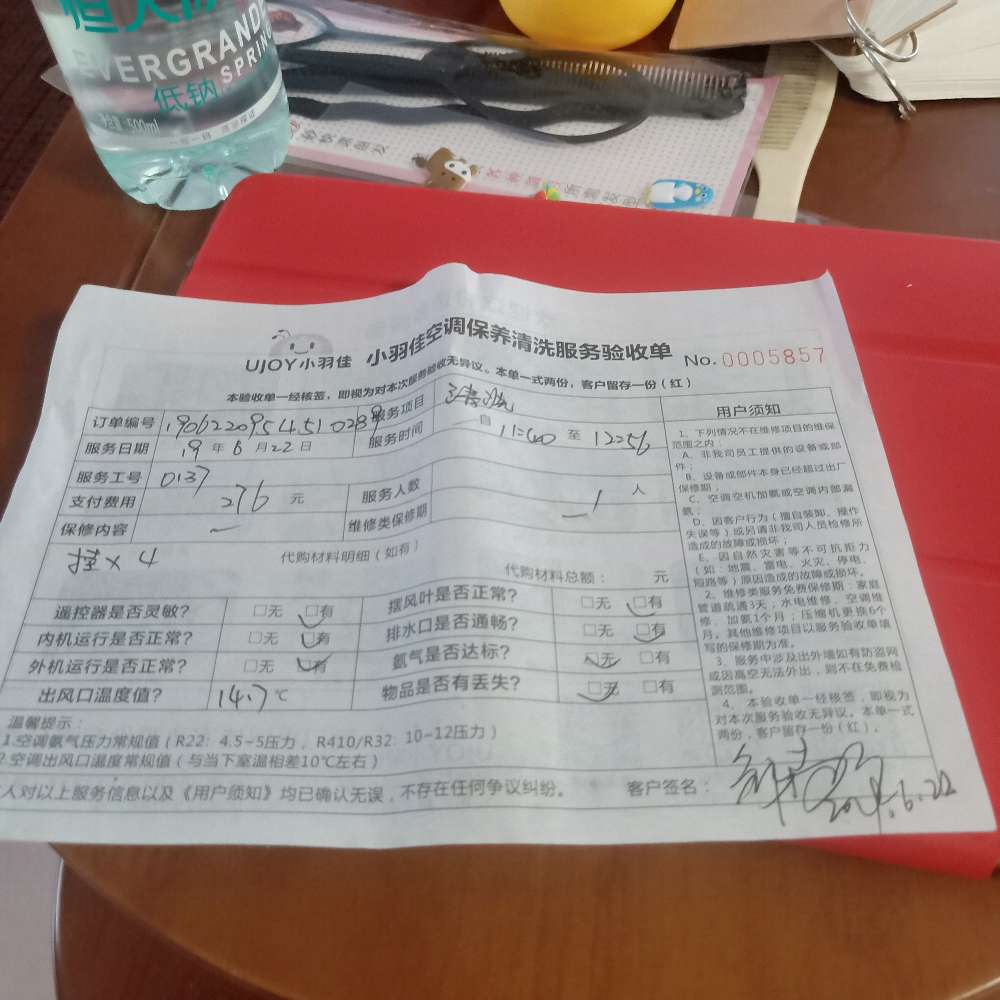 恒大冰
EVERGRANDE
SPRING
低钠
净含量:500ml
UJOY小羽佳 小羽佳空调保养清洗服务验收单 No.0005857
本验收单一经核签,即视为对本次服务验收无异议。本单一式两份,客户留存一份(红)
订单编号 190622095451028 服务项目 清洗
服务日期 19年6月22日 服务时间 自 11:40 至 12:56
服务工号 0137
支付费用 276 元 服务人数 1 人
保修内容 — 维修类保修期 —
挂×4 代购材料明细(如有)
代购材料总额: 元
遥控器是否灵敏? □无 □有 摆风叶是否正常? □无 □有
内机运行是否正常? □无 □有 排水口是否通畅? □无 □有
外机运行是否正常? □无 □有 氨气是否达标? □无 □有
出风口温度值? 14.7℃ 物品是否有丢失? □无 □有
温馨提示:
1.空调氨气压力常规值(R22:4.5~5压力,R410/R32:10~12压力)
2.空调出风口温度常规值(与当下室温相差10℃左右)
人对以上服务信息以及《用户须知》均已确认无误,不存在任何争议纠纷。 客户签名:
用户须知
1、下列情况不在维修项目的维保
范围之内:
A、非我司员工提供的设备或部
件;
B、设备或部件本身已经超过出厂
保修期;
C、空调空机加氨或空调内部漏
氨;
D、因客户行为(擅自装卸、操作
失误等)或另请非我司人员检修所
造成的故障或损坏;
E、因自然灾害等不可抗拒力
(如:地震、雷电、火灾、停电、
短路等)原因造成的故障或损坏。
2、维修类服务免费保修期:家庭
管道疏通3天;水电维修、空调维
修、加氨1个月;压缩机更换6个
月。其他维修项目以服务验收单填
写的保修期为准。
3、服务中涉及出外墙如有防盗网
或因高空无法外出,则不在免费检
测范围。
4、本验收单一经核签,即视为
对本次服务验收无异议。本单一式
两份,客户留存一份(红)。